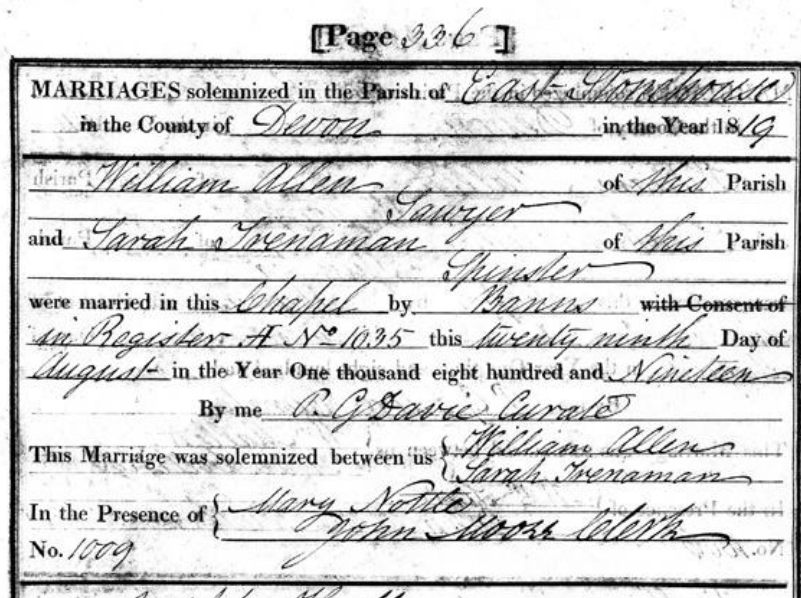 [Page 336]
MARRIAGES solemnized in the Parish of East Stonehouse
in the County of Devon in the Year 1819
William Allen of this Parish
Sawyer
and Sarah Trenaman of this Parish
Spinster
were married in this Chapel by Banns with Consent of
in Register A No 1035 this twenty ninth Day of
August in the Year One thousand eight hundred and Nineteen
By me P. G Davie Curate
This Marriage was solemnized between us { William Allen
Sarah Trenaman
In the Presence of { Mary Nottle
John Moore Clerk
No. 1009